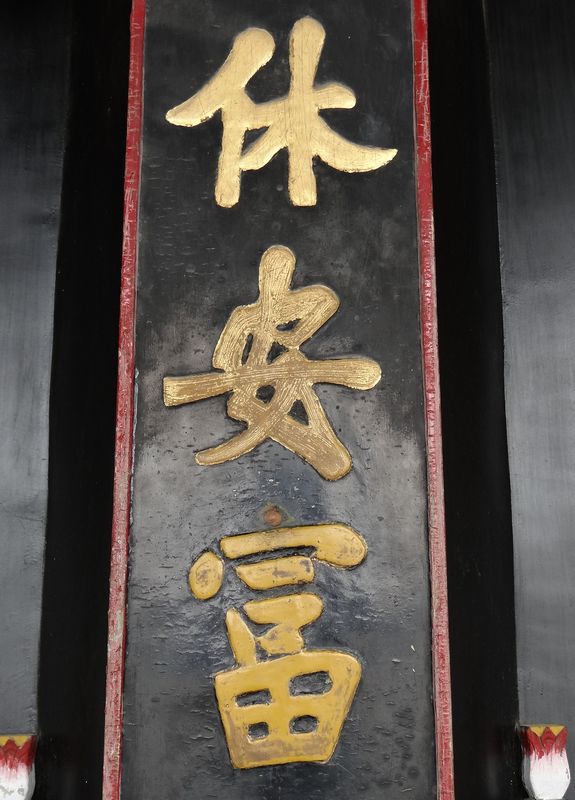 休安富